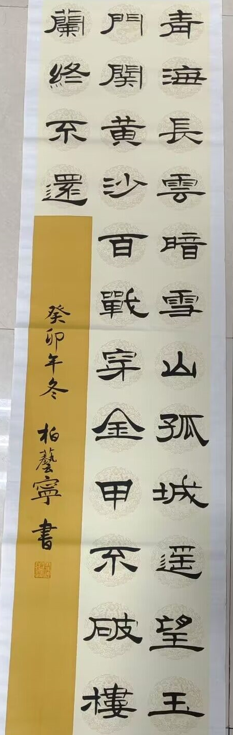 青海長雲暗雪山孤城遥望玉
門関黄沙百戰穿金甲不破樓
蘭終不還
癸卯年冬 柏藝寧書